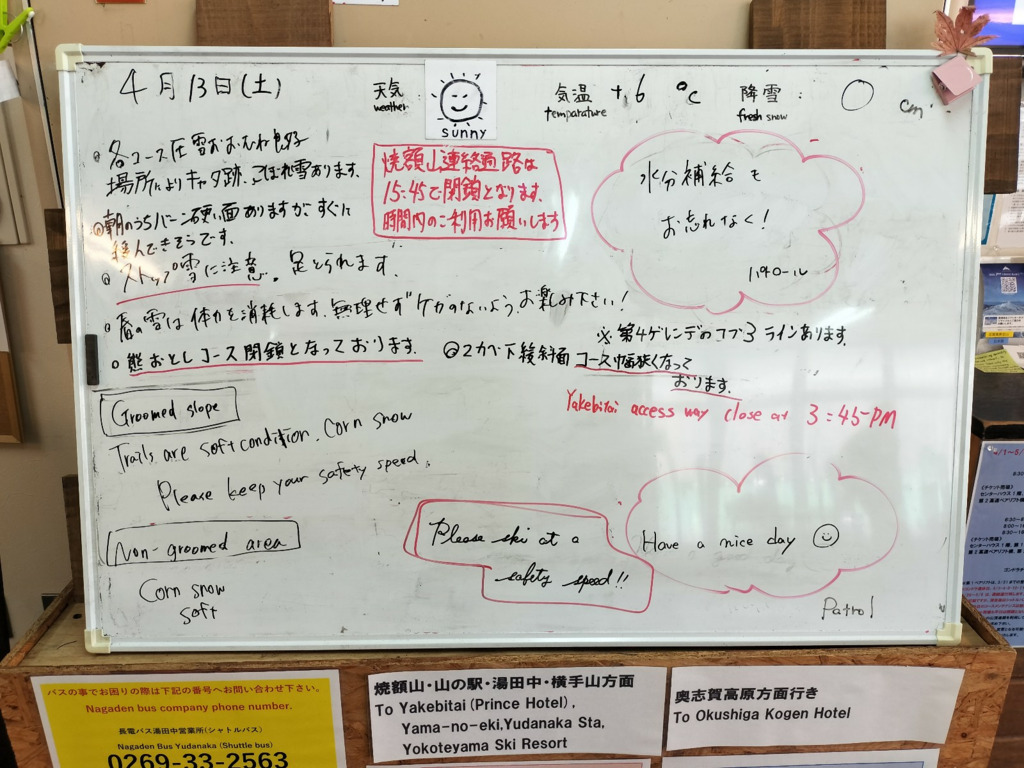 4月13日(土)
天気
weather:
sunny
気温
temparature
+6 ℃
降雪:
fresh snow
0 cm
・各コース圧雪おおむね良好
場所によりキャタ跡、こぼれ雪あります。
・朝のうちバーン硬い面ありますがすぐに
緩んできそうです。
・ストップ雪に注意。足とられます。
・春の雪は体力を消耗します。無理せずケガのないようお楽しみ下さい!
・熊おとしコース閉鎖となっております。
焼額山連絡通路は
15:45で閉鎖となります。
時間内のご利用お願いします
水分補給も
お忘れなく!
パトロール
※第4ゲレンデのコブ3ラインあります。
・2カベ下緩斜面コース幅狭くなって
おります。
Yakebitai access way close at 3:45-PM
Groomed slope
Trails are soft condition. Corn snow
Please keep your safety speed.
Non-groomed area
Corn snow
soft
Please ski at a
safety speed!!
Have a nice day
Patrol
バスの事でお困りの際は下記の番号へお問い合わせ下さい。
Nagaden bus company phone number.
長電バス湯田中営業所(シャトルバス)
Nagaden Bus Yudanaka (Shuttle bus)
0269-33-2563
焼額山・山の駅・湯田中・横手山方面
To Yakebitai (Prince Hotel),
Yama-no-eki,Yudanaka Sta,
Yokoteyama Ski Resort
奥志賀高原方面行き
To Okushiga Kogen Hotel